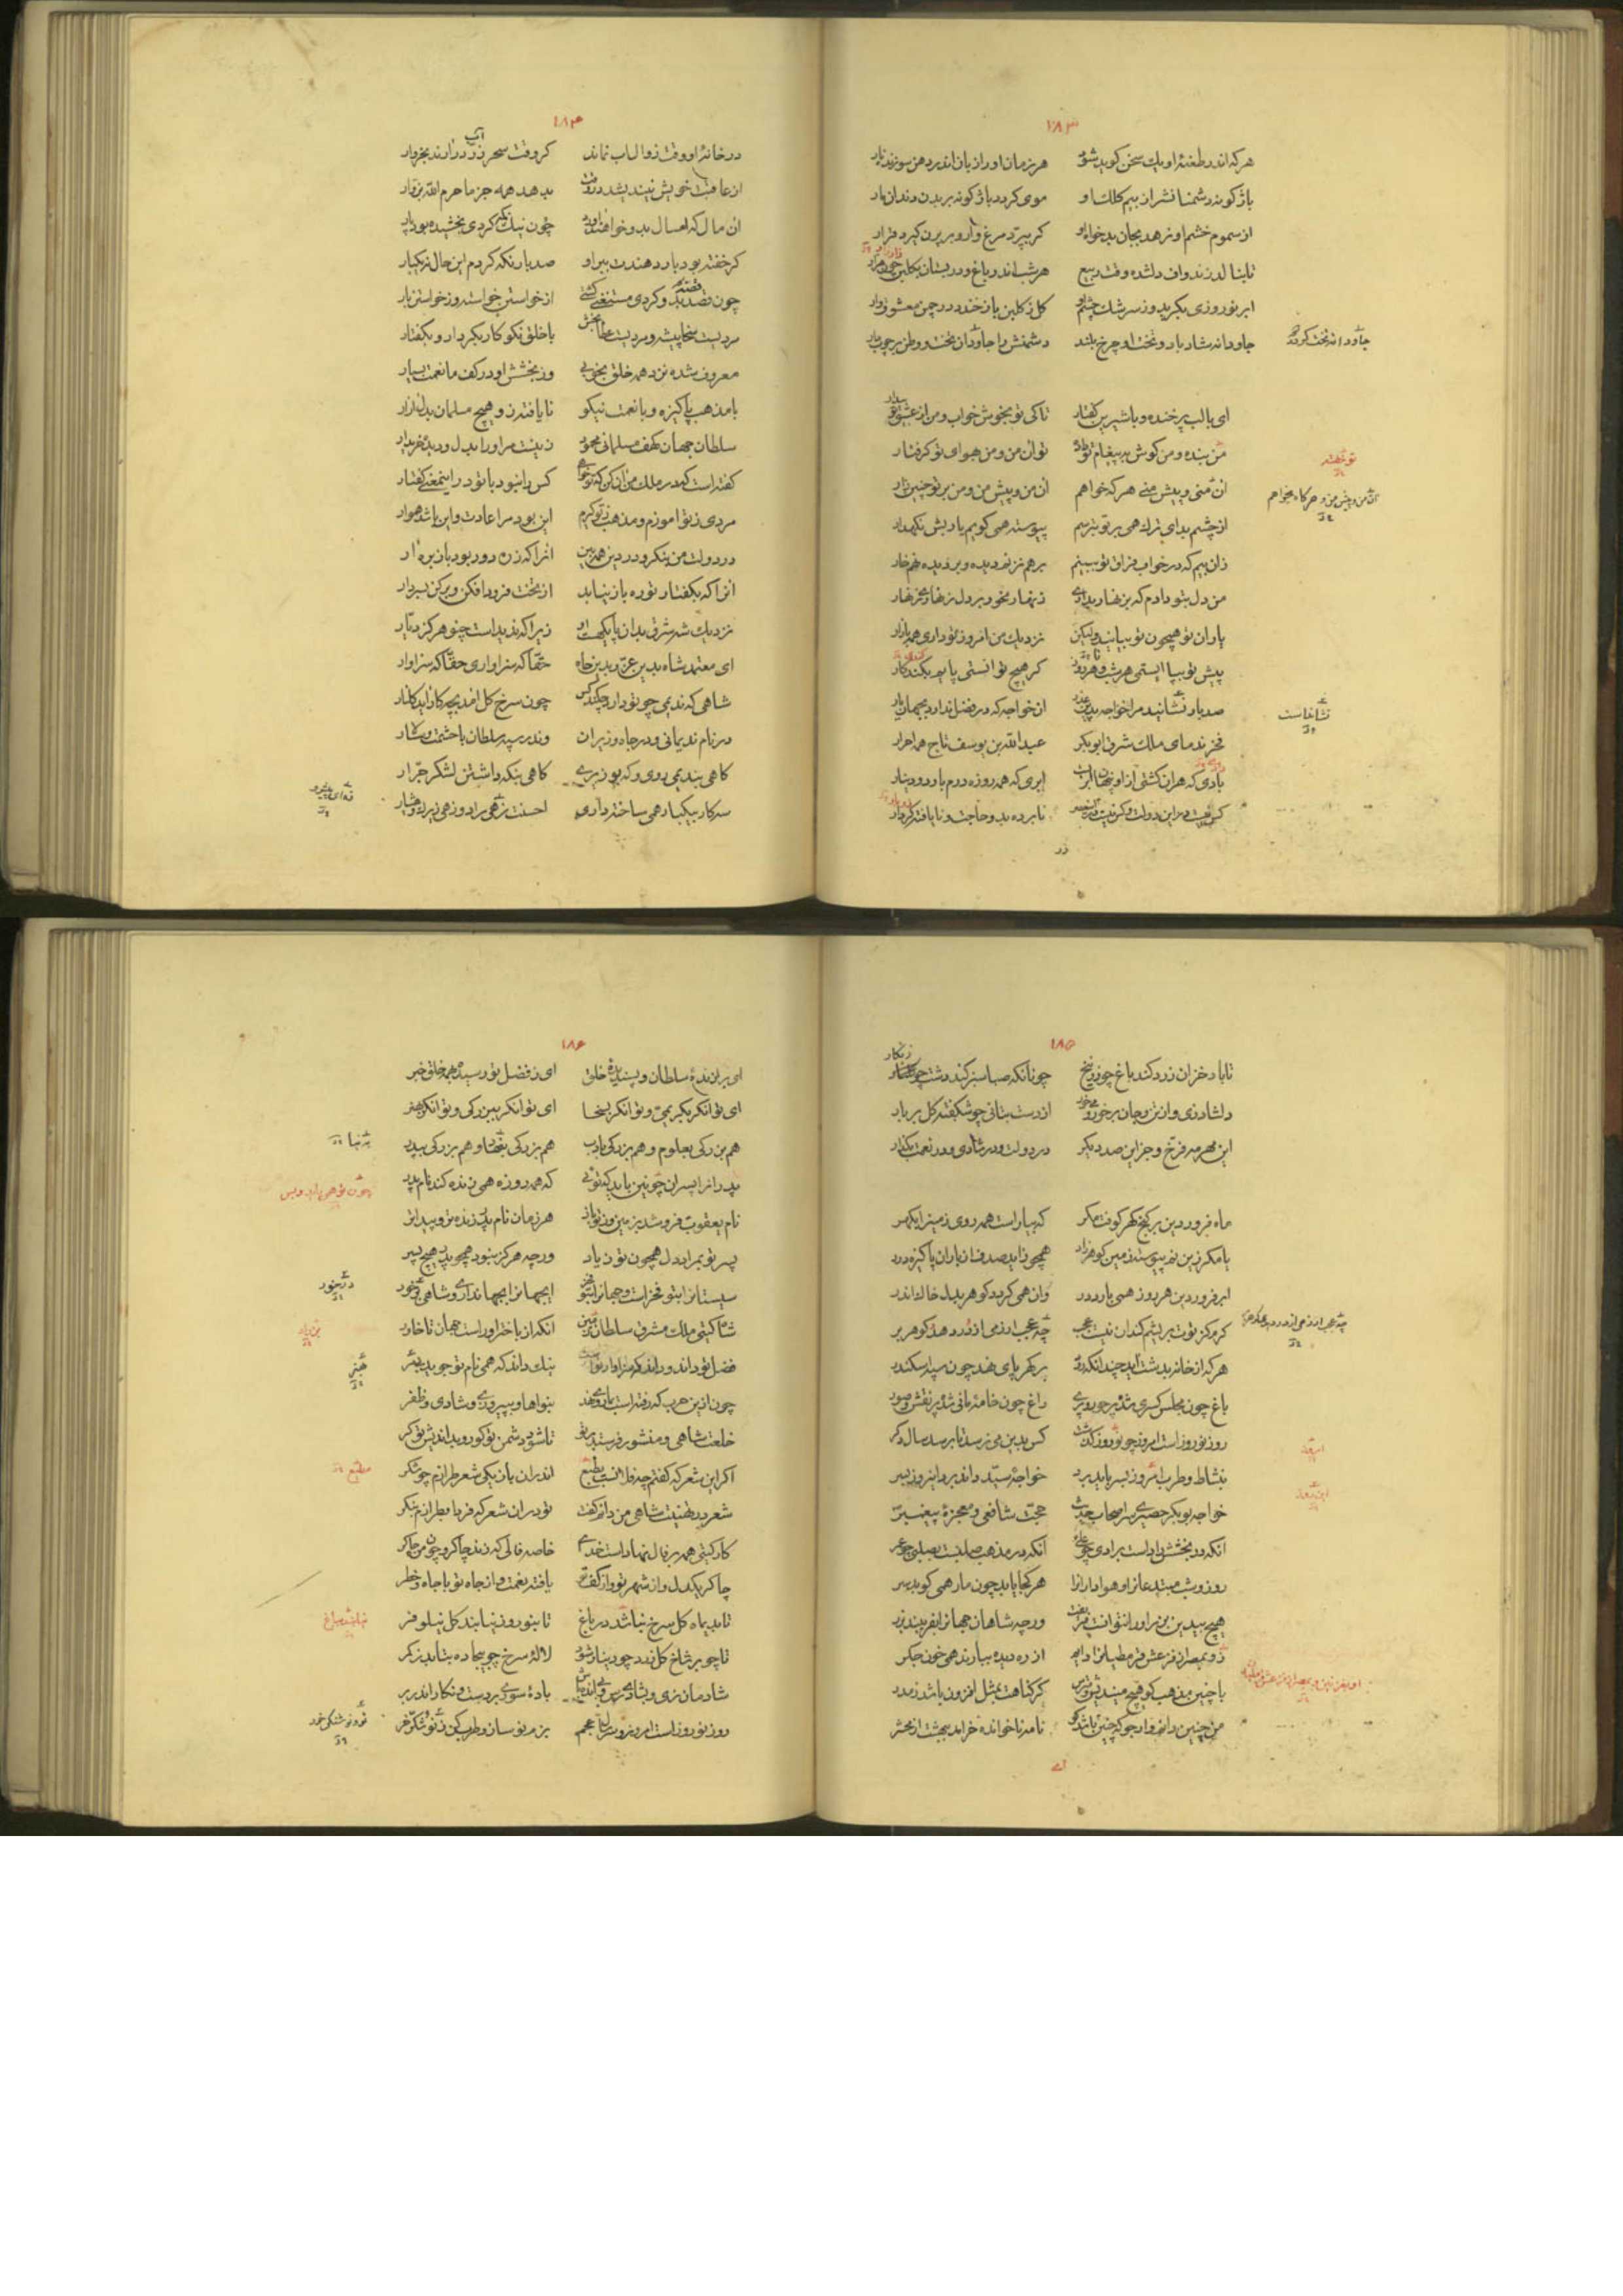 ١٨٣
هر که اندر طعنهٔ او یك سخن کوید شود هر زمان او را زبان اندر دهن سوزنده نار
باژکونه دشمنانش را ز بیم کلك او موی کردد باژکونه بر بدن دندان مار
از سموم خشم او نرهد بجان بدخواه او کر بپرّد مرغ وار و بر پرن کیرد قرار
تا بنالد زندواف دلشده وقت ربیع هر شب اندر باغ و در بستان بکلبن
ابر نوروزی بکرید وز سرشك چشم او کل ز کلبن باز خندد در چمن معشوق وار
جاودانه شاد باد و تخت او چرخ بلند دشمنش را جاودان تخت و وطن بر چوب دار
ای با لب پر خنده و با شیرین کفتار تا کی تو بخوش خواب و من از عشق تو بیدار
من بنده و من کوش به پیغام تو داده تو آن من و من بهوای تو کرفتار
آن منی و پیش منی هر که خواهم آن من و پیش من و من بر تو چنین زار
از چشم بد ای ترك همی بر تو بترسم پیوسته همی کویم یا ربش نکهدار
زان بیم که در خواب فراق تو ببینم بر هم نزنم دیده و بر دیده نهم خار
من دل بتو دادم که بزنهار بداری زنهار مخور بر دل زنهاری زنهار
یاران تو همچون تو بیایند ولیکن نزدیك من امروز تو داری همه بازار
پیش تو بپا ایستمی هر شب و هر روز کر هیچ توانستمی
صد بار نشانید مرا خواجه آن خواجه که در فضل ندارد بجهان یار
فخر ندمای ملك شرق ابوبکر عبدالله بن یوسف تاج همه احرار
ابری که همه روزه درم بارد و دینار
کس نیست درین دولت و کس نیست نابرده بدو حاجت و نایافته کردار
در
جاودانه تخت کرده
تو خفته
آن من و پیش من و هر کاه بخواهم
نشانداست
١٨٤
در خانهٔ او وقت زوال آب نماند کز وقت سحر زر در آرند بخروار
از عاقبت خویش نیندیشد بدهد همه جز ما حرم الله بزوار
آن مال که امسال بدو خواهند داد چون نیك نکه کردی بخشیده بود پار
کر خفته بود یار دهندت ببر او صد بار نکه کردم این حال نه یکبار
چون قصد بدو کردی مستغنی کشتی از خواستن خواسته وز خواستن بار
مردیست سخا پیشه و مردیست عطا بخش با خلق نکو کار بکردار و بکفتار
معروف شده نزد همه خلق بخوبی وز بخشش او در کف ما نعمت بسیار
با مذهب پاکیزه و با نعمت نیکو نایافته زو هیچ مسلمان بدل آزار
سلطان جهان کهف مسلمانی محمود زینست مر او را بدل و دیده خریدار
کفته است که در ملك من آن کن که تو خواهی کس را نبود با تو در این معنی کفتار
مردی ز تو آموزم و مذهب ز تو کیرم این بود مرا عادت و این باشد هموار
در دولت من بنکر و در دین همه بین آنرا که ز ره دور بود باز بره آر
آنرا که بکفتار تو ره باز نیابد از تخت فرود افکن و بر کن بسر دار
نزدیك شه شرق بدان پایکهست او زیرا که ندیدست چنو هرکز دیار
ای معتمد شاه بدین عزّ و بدین جاه حقّا که سزاواری حقّا که سزاوار
شاهی که ندیمی چو تو دارد چکند کس چون سرخ کل آمد بچه کار آید کلنار
در نام ندیمانی و در جاه وزیران وندر سپه سلطان با حشمت و سالار
کاهی بندیمی روی و که بوزیری کاهی بنکه داشتن لشکر جرّار
سه کار بیکبار همی ساخته داری احسنت زهی راد و زهی زیرك و هشیار
١٨٥
تا باد خزان زرد کند باغ چو زرنیخ چونانکه صبا سبز کند دشت چو زنکار
دلشاد زی و از تن و جان برخور و می خور از دست بتانی چو شکفته کل بر بار
این مهر مه فرّخ و جز این صد دیکر در دولت و در شادی و در نعمت بکذار
ماه فروردین بر کنج کهر کوفت مکر که بیاراست همه روی زمین را بکهر
یا مکر زین نم پیوسته زمین کوهر زاد همچو زاید صدف از باران پاکیزه درر
ابر فروردین هر روز همی بارد در وان همی کردد کوهر بدل خاك اندر
کرم کز توت بریشم کند آن نیست عجب چه عجب ار زمی از در دهد کوهر بر
هر که از خانه بدشت آید چندانکه رود بر کهر پای نهد چون سپه اسکندر
باغ چون مجلس کسری شده پر حور و پری راغ چون خامهٔ مانی شده پر نقش و صور
روز نوروز است امروز چو نوروز کذشت کس بدین می نرسد تا برسد سال دکر
بنشاط و طرب امروز بسر باید برد خواجهٔ سیّد داند برد این روز بسر
خواجه بوبکر حصیری سر اصحاب حدیث حجّت شافعی و معجزهٔ پیغمبر
آنکه در بخشش و داد است برادی چو علی آنکه در مذهب صلبست بصلبی چو عمر
روز و شب مبتدعانرا و هوادارانرا هر کجا یابد چون مار همی کوبد سر
هیچ بیدین بزر او را نتوانست فریفت ورچه شاهان جهانرا بفریبند بزر
زو بمصر از فزعش قرمطیانرا از ره دیده ببارند همی خون جکر
با چنین مذهب کو هیچ میندیش و مترس کر کناهت بمثل افزون باشد ز مدر
من چنین دانم وارجو که چنین باشد کو نامه ناخوانده خرامد ببهشت از محشر
ای
چه عجب ار زمی از در دهد عکه
امروز
این روز
١٨٦
ای برازندهٔ سلطان و پسندیدهٔ خلق ای ز فضل تو رسیده بهمه خلق خبر
ای توانکر بکریمی و توانکر بسخا ای توانکر ببزرکی و توانکر بهنر
هم بزرکی بعلوم و هم بزرکی بادب هم بزرکی و هم بزرکی بپدر
پدرانرا پسران چونین باید که تویی که همه روزه همی زنده کند نام پدر
نام یعقوب فرو شد بزمین وز تو باز هر زمان نام پدر زنده تر و پیداتر
پسر تو بمراد دل همچون تو زیاد ورچه هرکز نبود همچو پدر هیچ پسر
سیستانرا بتو فخر است و جهانرا بتو فخر اینجهانرا بجهانداری و شاهی در خور
شاه کیتی ملك مشرق سلطان زمین آنکه از باختر او راست جهان تا خاور
فضل تو داند و داند که سزاوار تو نیك داند که همی نام تو جوید بهتر
چون ازین حرب که رفته است بنواها و بپیروزی و شادی و ظفر
خلعت شاهی و منشور فرستد بر تو تا شود دشمن تو کور و بداندیش تو کر
اکر این شعر که کفتم چو فلانست بطبع اندر آن بازیکی شعر طرازم چو شکر
شعر در تهنیت شاهی من دانم کفت تو در آن شعر که فردا بطرازم بنکر
کار کیتی همه بر فال نهاده است خدای خاصه فالی که زند چاکر و چون من چاکر
چاکر یکدل و از شهر تو و از کف تو یافته نعمت و از جاه تو با جاه و خطر
تا بدیماه کل سرخ نباشد در باغ تا بنوروز نیابند کل نیلوفر
تا چو بر شاخ کل زرد چو دینار شود لالهٔ سرخ چو بیجاده بتابد ز کمر
شادمان زی و بشادی رس و بادهٔ سوری بر دست و نکار اندر بر
روز نوروز است امروز و سر سال عجم بزم نو ساز و طرب کن ز نو و شکّر خر